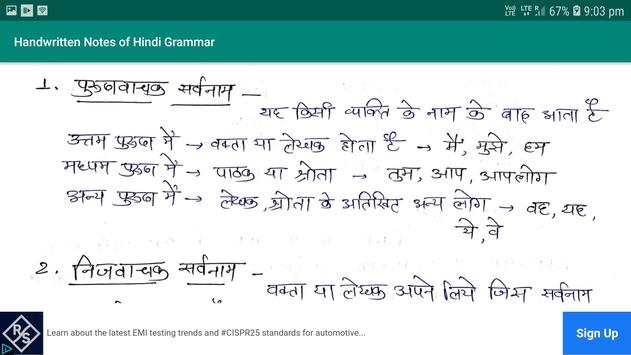 VoI) LTE LTE R 67% 9:03 pm
Handwritten Notes of Hindi Grammar
1. पुरुषवाचक सर्वनाम –
यह किसी व्यक्ति के नाम के बाद आता है
उत्तम पुरुष में → वक्ता या लेखक होता है → मैं, मुझे, हम
मध्यम पुरुष में → पाठक या श्रोता → तुम, आप, आपलोग
अन्य पुरुष में → लेखक, श्रोता के अतिरिक्त अन्य लोग → वह, यह,
ये, वे
2. निजवाचक सर्वनाम –
वक्ता या लेखक अपने लिये जिस सर्वनाम
R&S
Learn about the latest EMI testing trends and #CISPR25 standards for automotive...
Sign Up